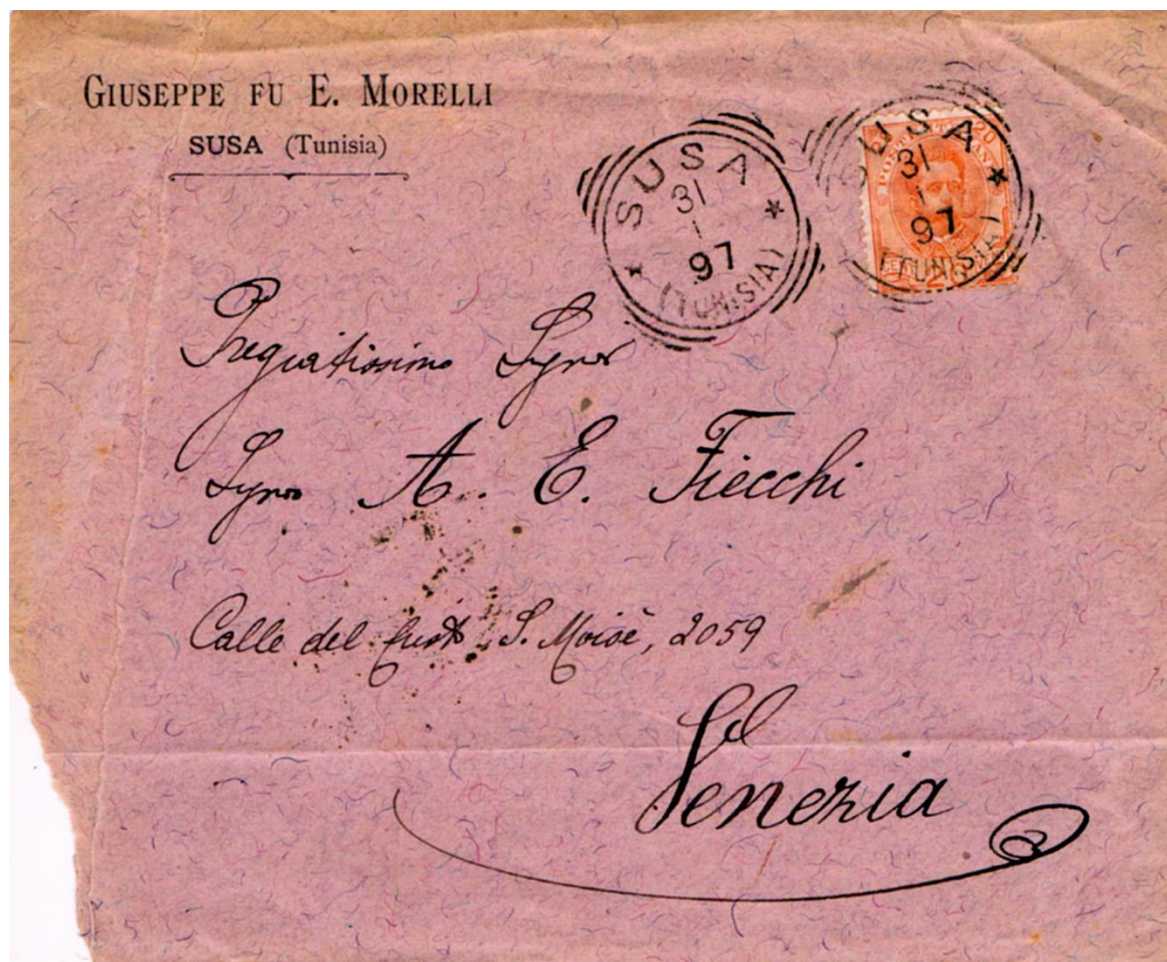 GIUSEPPE FU E. MORELLI
SUSA (Tunisia)
SUSA
31
1
97
(TUNISIA)
SUSA
31
1
97
(TUNISIA)
20
POSTE ITALIANE
Pregiatissimo Signor
Signor A. E. Fiecchi
Calle del S. Moisè, 2059
Venezia